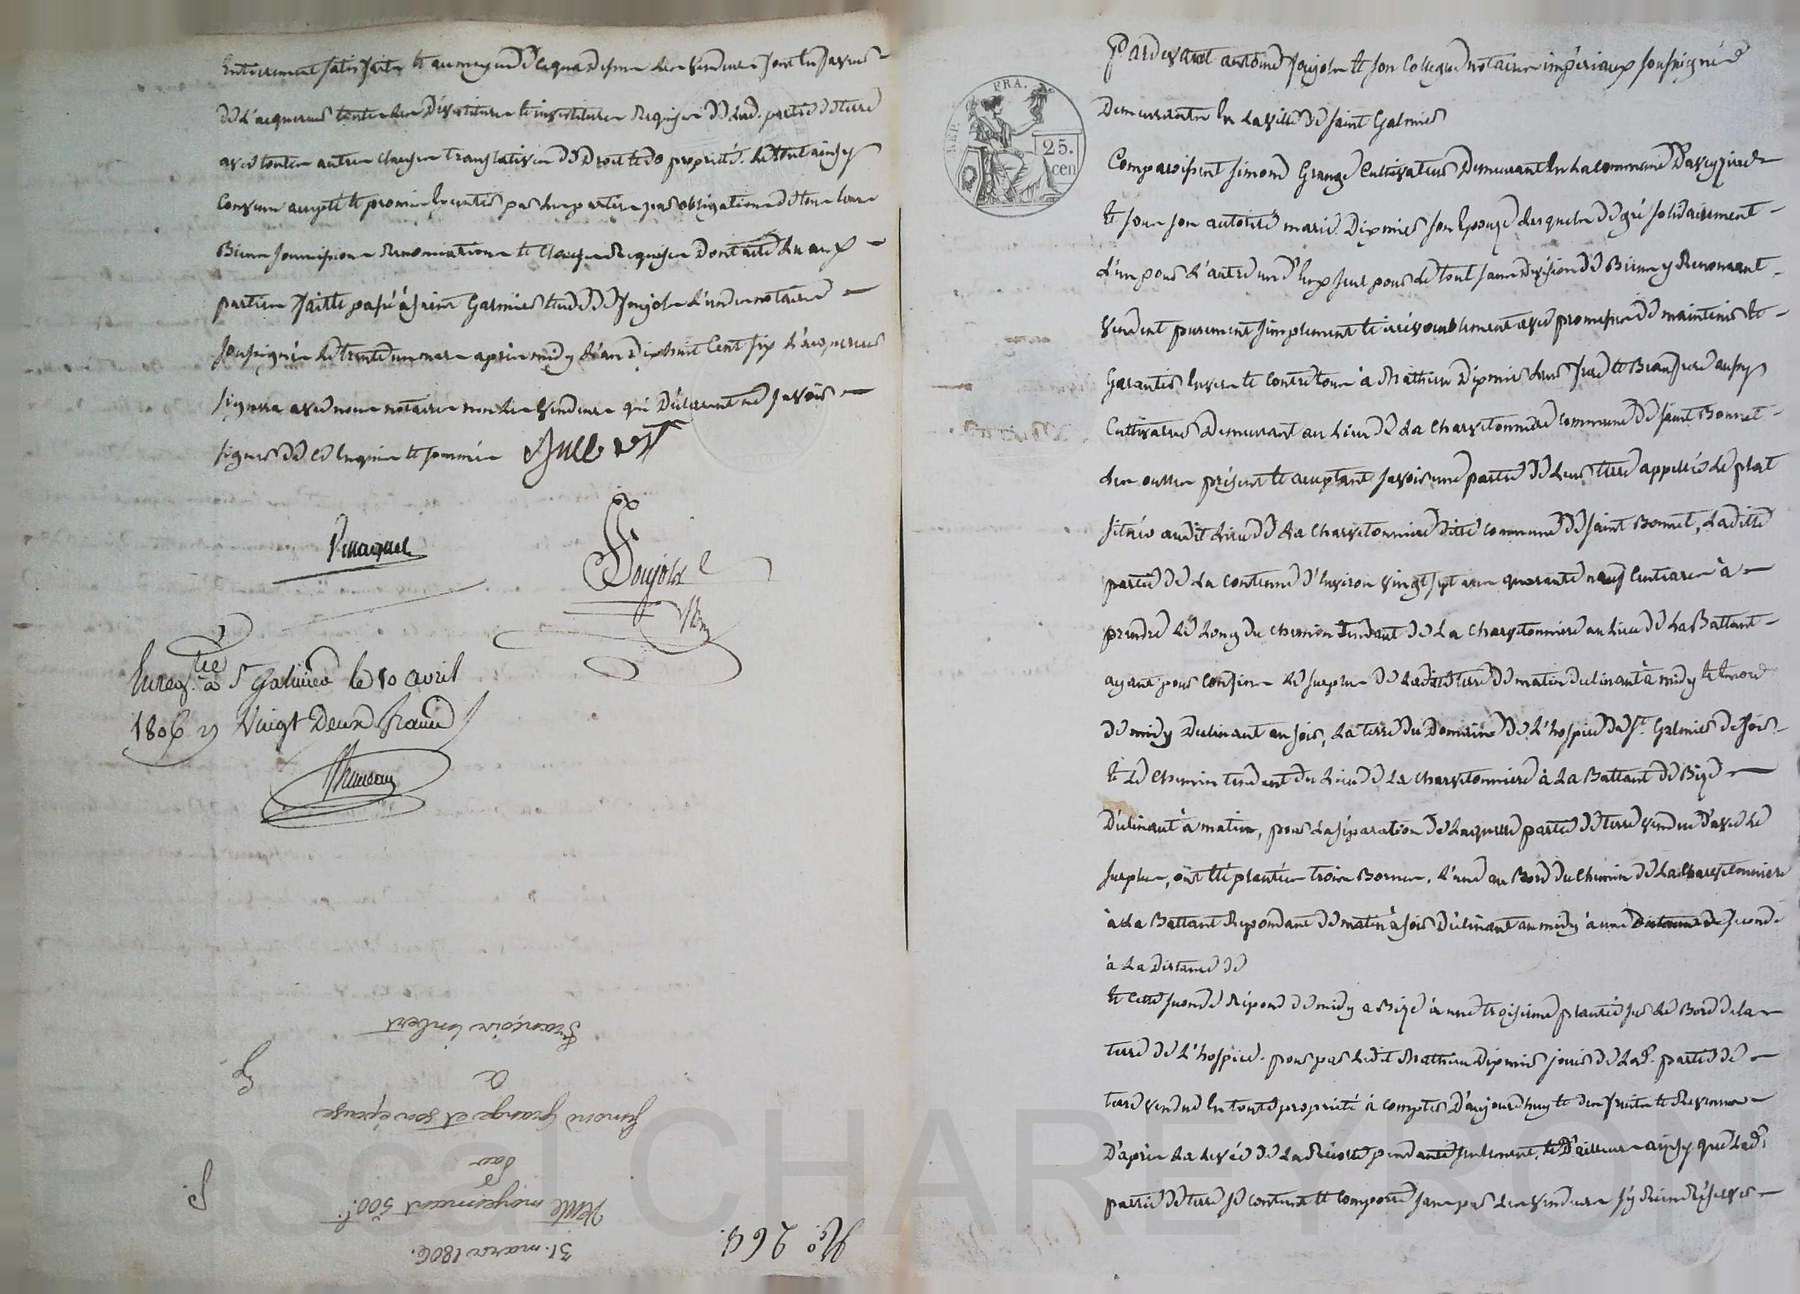 Entierement satisfaits et au moyen de ce que dessus les vendeurs sont
de l'acquereur toutes les devetitures et investitures requises de lad. partie de terre
avec toutes autres clauses translatives de droit et de propriété. le tout ainsy
convenu accepté et promis executer par les parties par obligation de tous leurs
Biens soumissions renonciations et clauses requises dont acte lu aux
parties fait et passé à Saint Galmier etude de Joujole l'un des notaires
soussignés le trente un mars après midy l'an dix huit cent six l'acquereur
signera avec nous notaires non les vendeurs qui declarent ne savoir
signer de ce enquis et sommés
Joujole
Enregtré à St Galmier le 10 avril
1806 Vingt Deux francs
françois imbert
a
Simond grange et son épouse
par
Vente moyennant 500f.
31. mars 1806.
No. 264.
Pardevant antoine Joujole et son collegue notaires impériaux soussignés
Demeurants en la ville de Saint Galmier
REP. FRA.
25.
cen
Comparoissent Simond Grange cultivateur Demeurant en la commune d'aveyzieux
et sous son autorité marie Dixmier son Epouse lesquels de gré solidairement
l'un pour l'autre un d'eux seul pour le tout sans division de Biens y Renonçant
vendent purement simplement et irrévocablement avec promesse de maintenir et
Garantir envers et contre tous à Mathieu Dixmier leur frere et Beaufrere aussy
Cultivateur demeurant au Lieu de La Charvetonniere commune de saint Bonnet
les oulles présent et acceptant savoir une partie de leur terre appellée le plat
située audit Lieu de La Charvetonniere ditte commune de saint Bonnet, Laditte
partie de La contenue d'environ vingt sept ares quarante neuf centiares à
prendre Le Long du chemin tendant de La Charvetonniere au Lieu de La Battant
ayant pour confins le surplus de Laditte terre de matin declinant à midy et encore
de midy declinant au soir, La terre du Domaine de L'hospice de St. Galmier de soir
et Le chemin tendant du Lieu de La Charvetonniere à La Battant de Bize
declinant à matin, pour La séparation de Laquelle partie de terre vendue d'avec Le
surplus, ont été plantées trois Bornes. L'une au Bord du chemin de La Charvetonniere
à La Battant Repondant de matin à soir declinant au midy à une seconde
à La Distance de
et cette seconde répond de midy a Bize à une troisieme plantée sur Le Bord de la
terre de L'hospice. pour par Ledit Mathieu Dixmier jouir de Lad. partie de
terre vendue en toute propriété à compter d'aujourdhuy et des fruits et Revenus
D'après La Levée de La Récolte pendante seulement, et D'ailleurs ainsy que Lad.
partie de terre se contient et comporte sans par Les vendeurs s'y Rien Réserver
Pascal CHAREYRON